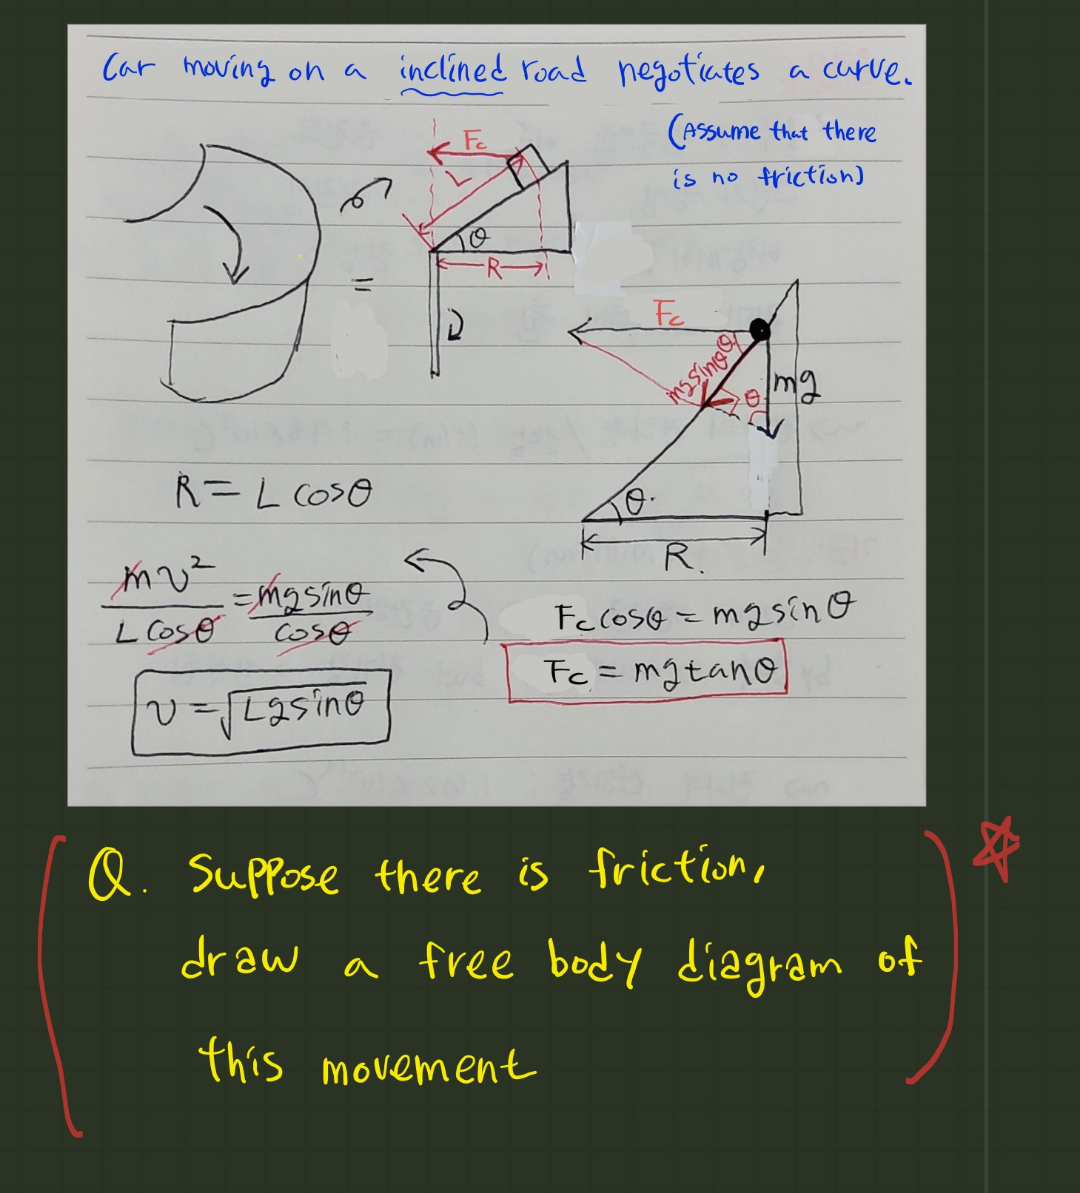 Car moving on a inclined road negotiates a curve.
(Assume that there
is no friction)
Fc
L
θ
R
Fc
mgsinθ
θ
mg
θ
θ.
R.
R = L cosθ
mv²/Lcosθ = mgsinθ/cosθ
v = √Lgsinθ
Fc cosθ = mgsinθ
Fc = mgtanθ
Q. Suppose there is friction,
draw a free body diagram of
this movement